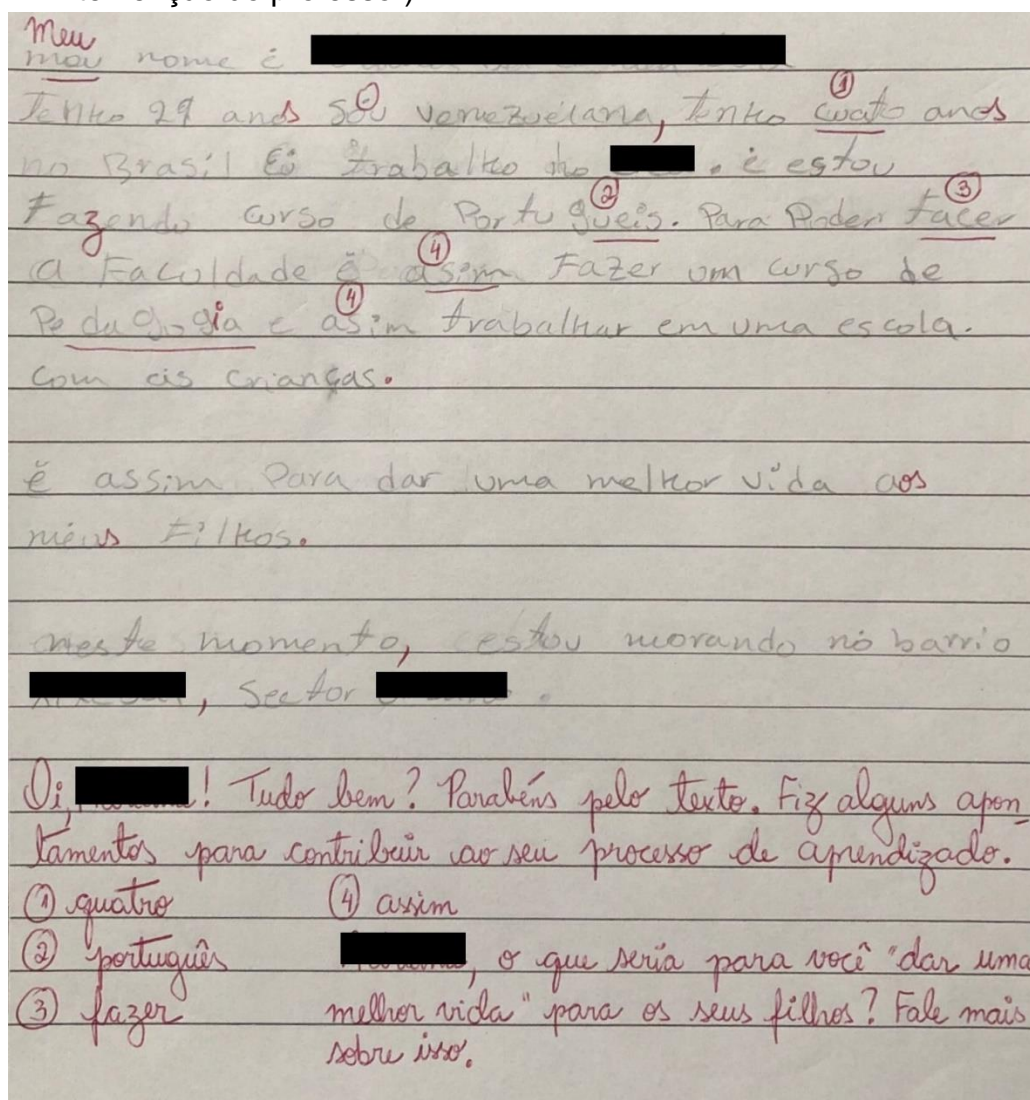 Meu
mou nome é
Tenho 29 anos sou venezuelana, tenho cuato anos
no Brasil Eú trabalho no . é estou
Fazendo curso de Portugueis. Para Poder facer
a Faculdade é asim Fazer um curso de
Pedagogia e asim trabalhar em uma escola.
com as crianças.
é assim Para dar uma melhor vida aos
meus Filhos.
neste momento, estou morando no barrio
, Sector .
Oi, ! Tudo bem? Parabéns pelo texto. Fiz alguns apon_
tamentos para contribuir ao seu processo de aprendizado.
① quatro ④ assim
② português , o que seria para você "dar uma
③ fazer melhor vida" para os seus filhos? Fale mais
sobre isso.